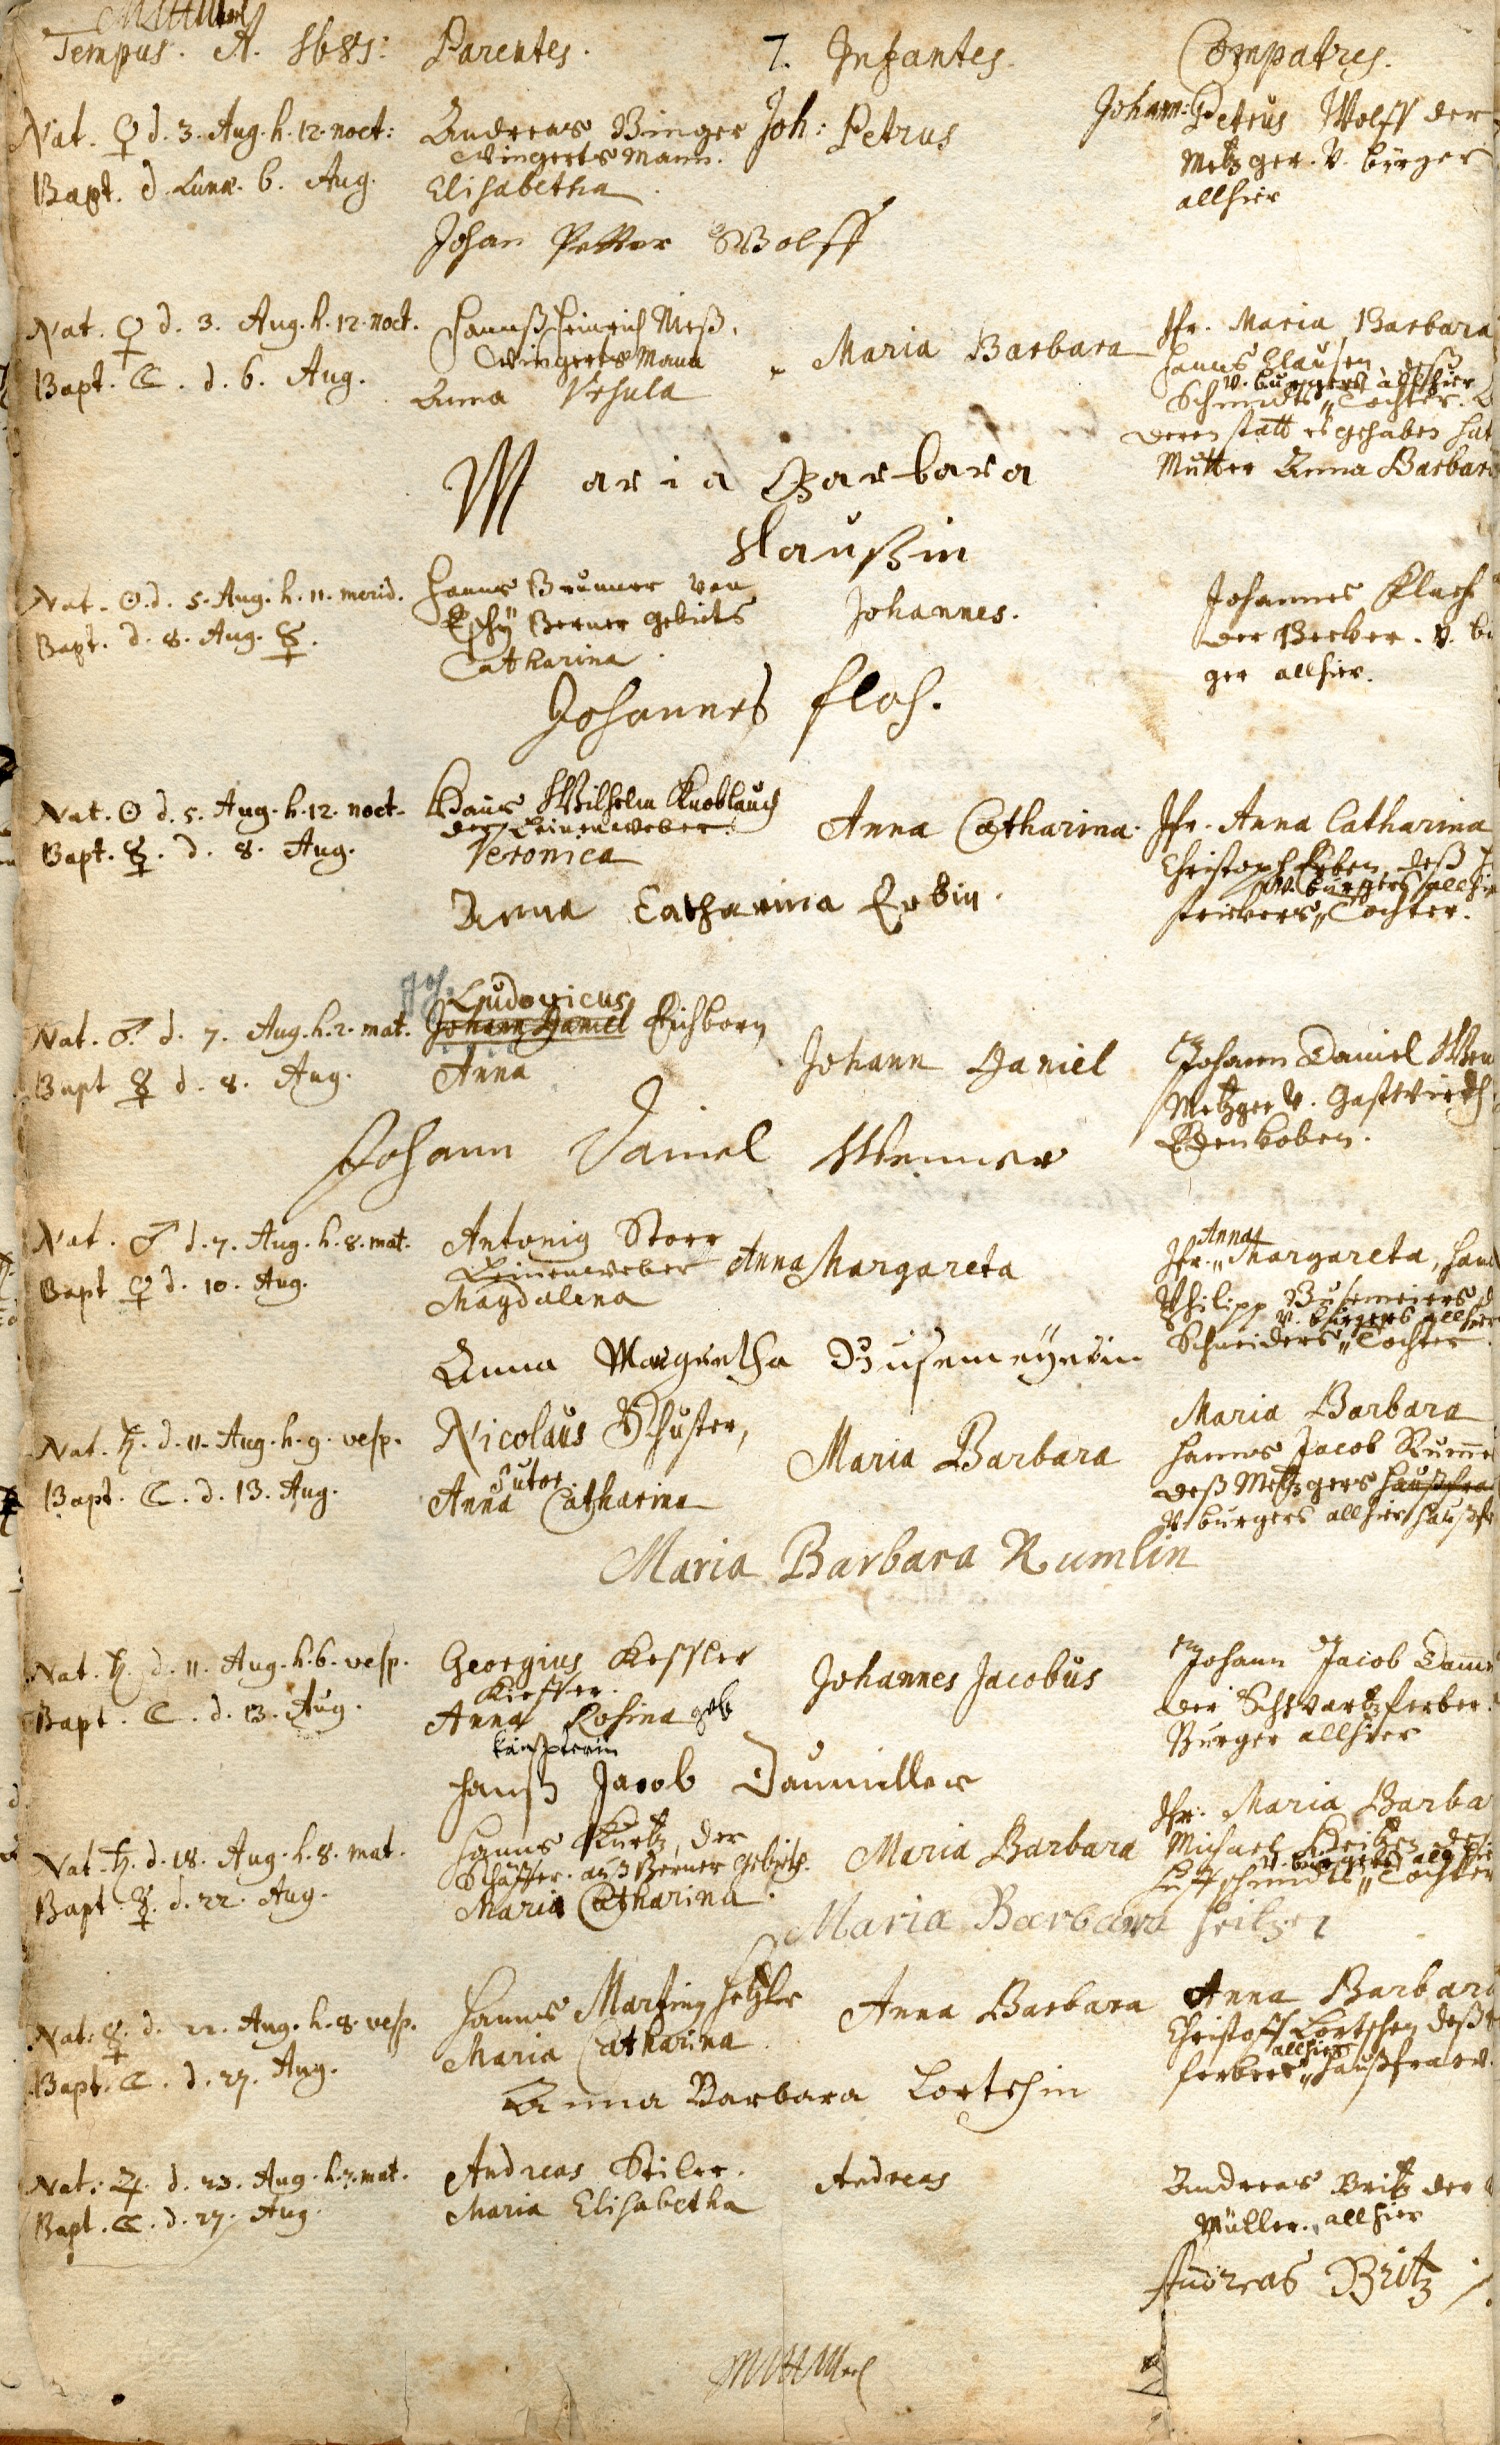 Tempus. A. 1683:
Parentes.
7. Infantes.
Compatres.
Nat. ♀ d. 3. Aug. h. 12. noct:
Bapt. d. Lunæ. 6. Aug.
Andreas Binger
Wingertsmann.
Elisabetha
Joh: Petrus
Johann: Petrus Wolff der
Metzger. v. burger
allhier
Johan Petter Wolff
Nat. ♀ d. 3. Aug. h. 12. noct.
Bapt. ☾. d. 6. Aug.
Hannß Heinrich Meß,
Wingertsmann
Anna Ursula
Maria Barbara
Jfr. Maria Barbara
Hanns Clausen, deß
v. burgers allhier
Schmidts " Tochter.
deren statt es gehaben hat
Mutter Anna Barbara
Maria Barbara
Klaußin
Nat. ☉ d. 5. Aug. h. 11. merid.
Bapt. d. 8. Aug. ☿.
Hanns Brunner von
Berner gebiets
Catharina.
Johannes.
Johannes
der Becker. v. bur
ger allhier.
Johannes floh.
Nat. ☉ d. 5. Aug. h. 12. noct.
Bapt. ☿. d. 8. Aug.
Hans Wilhelm Knoblauch
der Leinenweber.
Veronica
Anna Catharina.
Jfr. Anna Catharina
Christoph Erben, deß
v. burgers allhier
strickers " Tochter.
Anna Catharina Erbin.
Joh. Ludovicus
Nat. ♂. d. 7. Aug. h. 2. mat.
Bapt ☿ d. 8. Aug.
Johann Daniel Eichborn
Anna
Johann Daniel
Johann Daniel Wen
Metzger v. Gastwirth
Edenkoben.
Johann Daniel Wenner
Nat. ♂ d. 7. Aug. h. 8. mat.
Bapt ♀ d. 10. Aug.
Antonig Storr
Leinenweber
Magdalena
Anna Margareta
Anna
Jfr. " Margareta, Hans
Philipp Busemeiers
v. burgers allhier
Schneiders " Tochter
Anna Margretha Busemeyerin
Nat. ♄. d. 11. Aug. h. 9. vesp.
Bapt. ☾. d. 13. Aug.
Nicolaus Schuster,
Sutor.
Anna Catharina
Maria Barbara
Maria Barbara
Hanns Jacob Rumme
deß Metzgers haußfra
v. burgers allhier haußfr
Maria Barbara Rumlin
Nat. ♄. d. 11. Aug. h. 6. vesp.
Bapt. ☾. d. 13. Aug.
Georgius Kessler
Kieffer.
Anna Rosina geb
Johannes Jacobus
Johann Jacob
der Schwartzferber.
Burger allhier
Hanß Jacob Daumiller
Nat. ♄. d. 18. Aug. h. 8. mat.
Bapt. ☿. d. 22. Aug.
Hanns Kurtz, der
Schäffer. auß Berner Gebieth.
Maria Catharina.
Maria Barbara
Jfr. Maria Barba
Michael
v. burgers allhie
Huffschmidts " Tochter
Maria Barbara
Nat: ☿. d. 22. Aug. h. 8. vesp.
Bapt. ☾. d. 27. Aug.
Hanns Marting
Maria Catharina
Anna Barbara
Anna Barbara
Christoff Lortschen deß
allhier
ferbers " haußfraw.
Anna Barbara Lortschin
Nat: ♃. d. 23. Aug. h. 7. mat.
Bapt. ☾. d. 27. Aug.
Andreas Stiler.
Maria Elisabetha
Andreas
Andreas Britz der
Müller. allhier
Andreas Britz